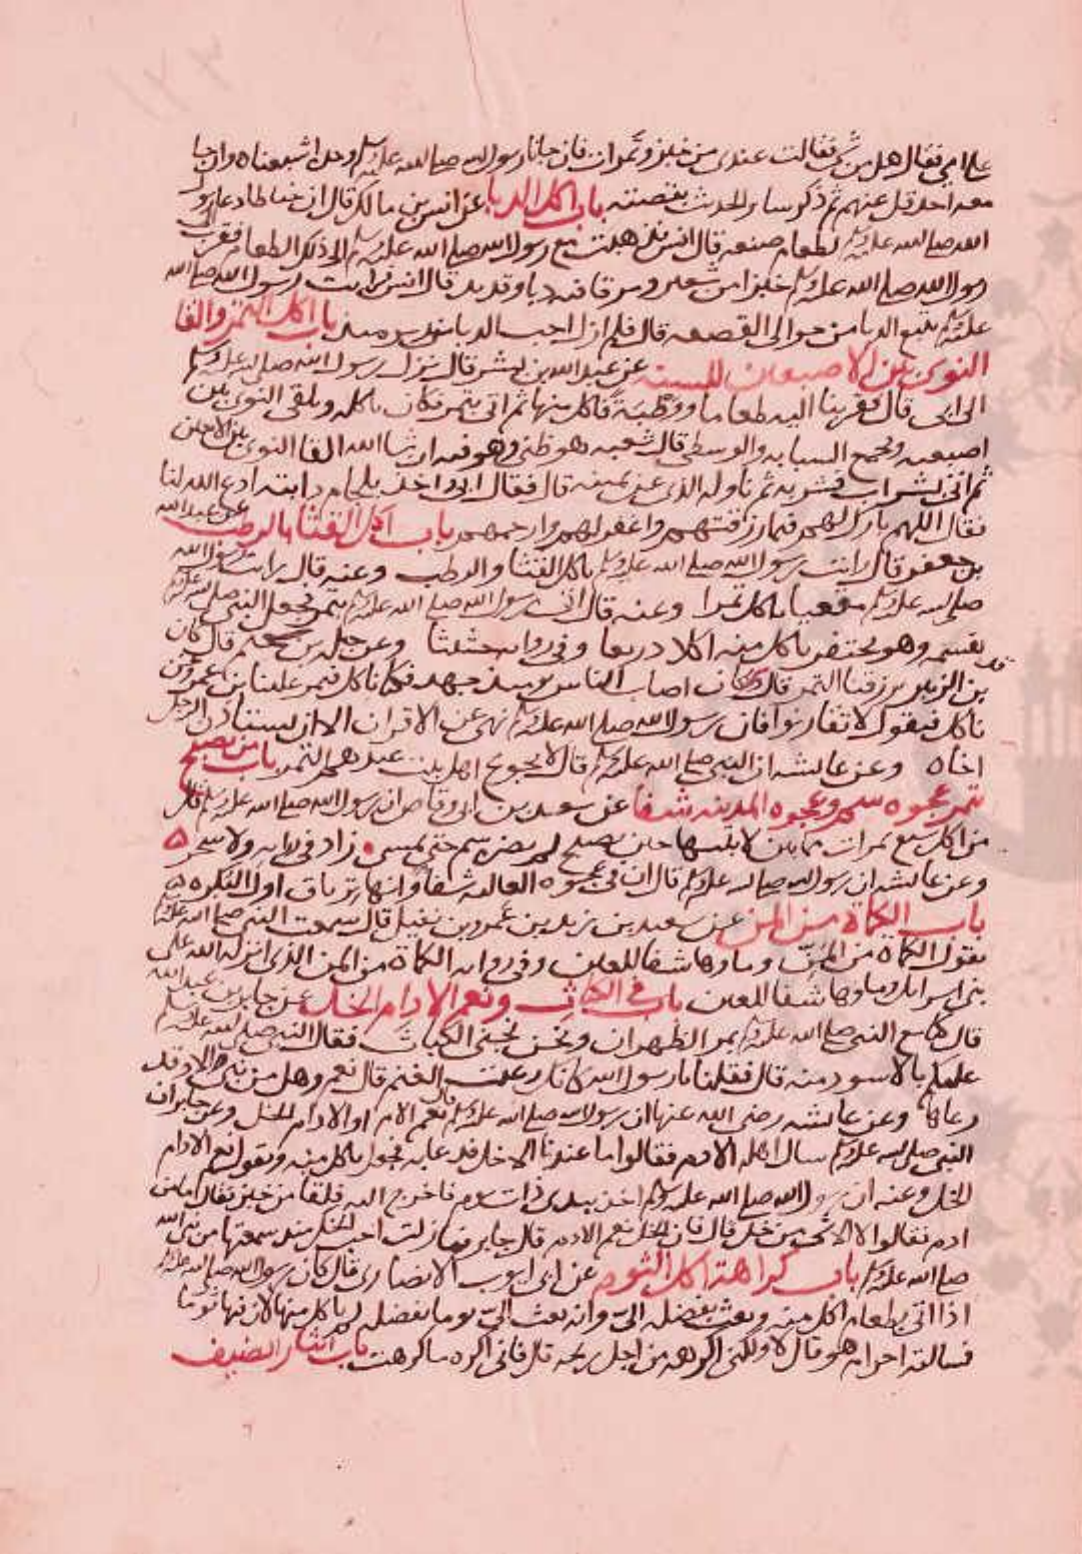 علا مي فقال هل من شي فقالت عندي من خبز وتمرات فان جانا رسول الله صلى الله عليه وسلم وحده اشبعناه وان جا
معه احد قل عنهم ثم ذكر ساير الحديث بقصته باب اكل الدبا عن انس بن مالك قال ان خياطا دعا رسول
الله صلى الله عليه وسلم لطعام صنعه قال انس فذهبت مع رسول الله صلى الله عليه وسلم الى ذلك الطعام فقرب الى
رسول الله صلى الله عليه وسلم خبزا من شعير ومرقا فيه دبا وقديد قال انس فرايت رسول الله صلى الله
عليه وسلم يتتبع الدبا من حوالي القصعه قال فلم ازل احب الدبا من يوميذ باب اكل التمر والقا
النوى بين الاصبعين للسنه عن عبد الله بن بسر قال نزل رسول الله صلى الله عليه وسلم
الى ابي قال فقربنا اليه طعاما ووطبة فاكل منها ثم اتي بتمر فكان ياكله ويلقي النوى بين
اصبعيه ويجمع السبابه والوسطى قال شعبه هو ظني وهو فيه ان شا الله القا النوى بين الاصبعين
ثم اتي بشراب فشربه ثم ناوله الذي عن يمينه قال فقال ابي واخذ بلجام دابته ادع الله لنا
فقال اللهم بارك لهم فيما رزقتهم واغفر لهم وارحمهم باب اكل القثا بالرطب عن عبد الله
بن جعفر قال رايت رسول الله صلى الله عليه وسلم ياكل القثا والرطب وعنه قال رايت رسول الله
صلى الله عليه وسلم مقعيا ياكل تمرا وعنه قال اتي رسول الله صلى الله عليه وسلم بتمر فجعل النبي صلى الله عليه وسلم
يقسمه وهو محتفز ياكل منه اكلا ذريعا وفي روايه حثيثا وعن جبله بن سحيم قال كان
بن الزبير يرزقنا التمر قال وكان اصاب الناس يوميذ جهد فكنا ناكل فيمر علينا بن عمر ونحن
ناكل فيقول لا تقارنوا فان رسول الله صلى الله عليه وسلم نهى عن الاقران الا ان يستاذن الرجل
اخاه وعن عايشه ان النبي صلى الله عليه وسلم قال لا يجوع اهل بيت عندهم التمر باب من تصبح
بتمر عجوه سم وعجوه المدينه شفا عن سعد بن ابي وقاص ان رسول الله صلى الله عليه وسلم قال
من اكل سبع تمرات مما بين لابتيها حين يصبح لم يضره سم حتى يمسي ه زاد في روايه ولا سحر ه
وعن عايشه ان رسول الله صلى الله عليه وسلم قال ان في عجوه العاليه شفا وانها ترياق اول البكره ه
باب الكماة من المن عن سعيد بن زيد بن عمرو بن نفيل قال سمعت النبي صلى الله عليه وسلم
يقول الكماه من المن وماوها شفا للعين وفي روايه الكماة من المن الذي انزله الله على
بني اسرايل وماوها شفا للعين باب في الكباث ونعم الادام الخل عن جابر بن عبد الله
قال كنا مع النبي صلى الله عليه وسلم بمر الظهران ونحن نجني الكباث فقال النبي صلى الله عليه وسلم
عليكم بالاسود منه قال فقلنا يا رسول الله كانك رعيت الغنم قال نعم وهل من نبي الا وقد
رعاها وعن عايشه رضي الله عنها ان رسول الله صلى الله عليه وسلم قال نعم الادم او الادام الخل وعن جابر ان
النبي صلى الله عليه وسلم سال اهله الادم فقالوا ما عندنا الا خل فدعا به فجعل ياكل منه ويقول نعم الادام
الخل وعنه ان رسول الله صلى الله عليه وسلم اخذ بيدي ذات يوم فاخرج اليه فلقا من خبز فقال ما من
ادم فقالوا لا الا شي من خل قال فان الخل نعم الادم قال جابر فما زلت احب الخل منذ سمعتها من نبي الله
صلى الله عليه وسلم باب كراهة اكل الثوم عن ابي ايوب الانصاري قال كان رسول الله صلى الله عليه وسلم
اذا اتي بطعام اكل منه وبعث بفضله الي وانه بعث الي يوما بفضله لم ياكل منها لان فيها ثوما
فسالته احرام هو قال لا ولكني اكرهه من اجل ريحه قال فاني اكره ما كرهت باب ايثار الضيف